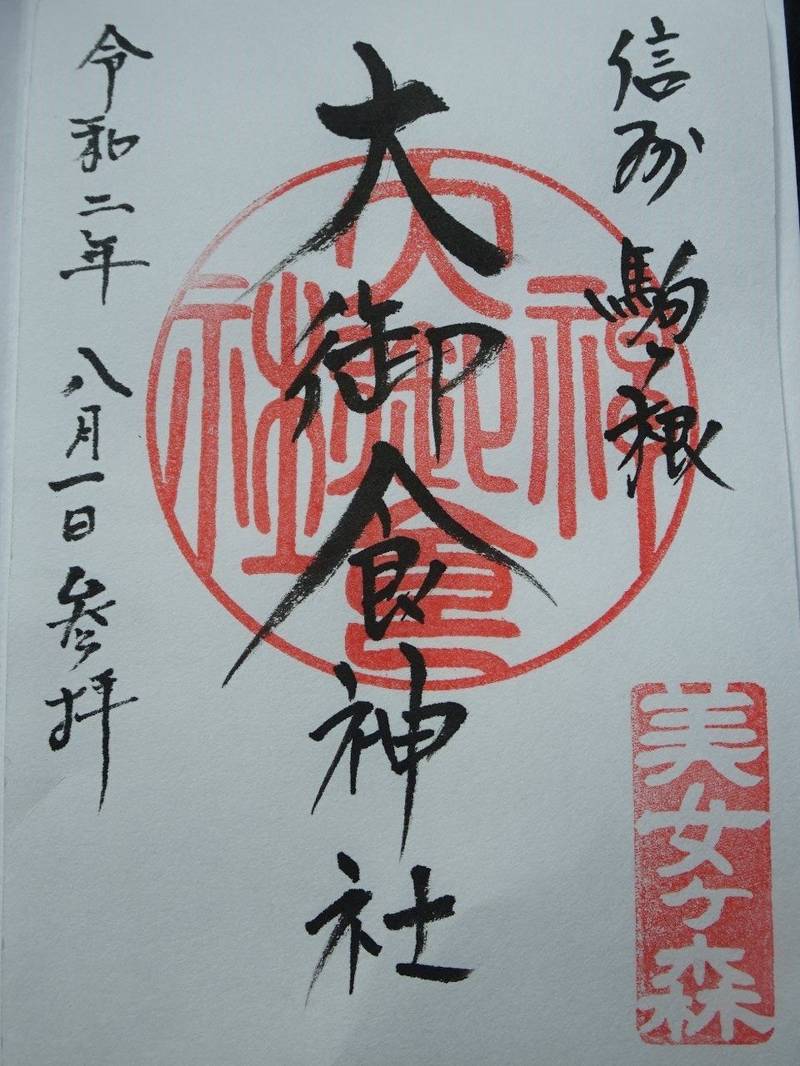 信州 駒ヶ根
大御食神社
令和二年 八月一日 参拝
大御食神社
美女ヶ森